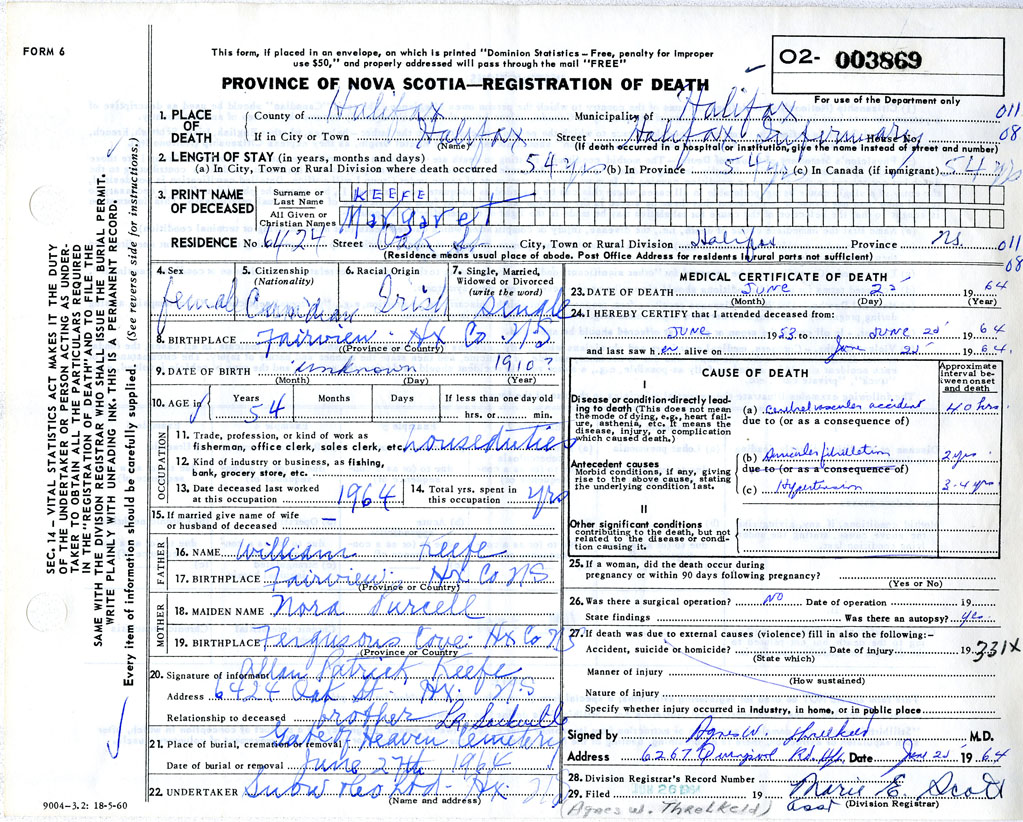 FORM 6
This form, if placed in an envelope, on which is printed "Dominion Statistics – Free, penalty for improper
use $50," and properly addressed will pass through the mail "FREE"
O2- 003869
PROVINCE OF NOVA SCOTIA—REGISTRATION OF DEATH
For use of the Department only
1. PLACE OF DEATH { County of Halifax Municipality of Halifax 011
If in City or Town Halifax (Name) Street Halifax Infirmary House No. 08
(If death occurred in a hospital or institution, give the name instead of street and number)
2. LENGTH OF STAY (in years, months and days)
(a) In City, Town or Rural Division where death occurred 54 yrs (b) In Province 54 yrs (c) In Canada (if immigrant) 54 yrs
3. PRINT NAME OF DECEASED { Surname or Last Name KEEFE
All Given or Christian Names Margaret
RESIDENCE No. 6424 Street Oak St. City, Town or Rural Division Halifax Province N.S. 011
(Residence means usual place of abode. Post Office Address for residents in rural parts not sufficient) 08
SEC. 14 – VITAL STATISTICS ACT MAKES IT THE DUTY
OF THE UNDERTAKER OR PERSON ACTING AS UNDER-
TAKER TO OBTAIN ALL THE PARTICULARS REQUIRED
IN THE "REGISTRATION OF DEATH" AND TO FILE THE
SAME WITH THE DIVISION REGISTRAR WHO SHALL ISSUE THE BURIAL PERMIT.
WRITE PLAINLY WITH UNFADING INK. THIS IS A PERMANENT RECORD.
Every item of information should be carefully supplied. (See reverse side for instructions.)
4. Sex female
5. Citizenship (Nationality) Canadian
6. Racial Origin Irish
7. Single, Married, Widowed or Divorced (write the word) Single
8. BIRTHPLACE Fairview Hx Co N.S
(Province or Country)
9. DATE OF BIRTH unknown 1910?
(Month) (Day) (Year)
10. AGE in Years 54 Months Days If less than one day old hrs. or min.
OCCUPATION
11. Trade, profession, or kind of work as
fisherman, office clerk, sales clerk, etc. houseduties
12. Kind of industry or business, as fishing,
bank, grocery store, etc.
13. Date deceased last worked
at this occupation 1964
14. Total yrs. spent in
this occupation yrs
15. If married give name of wife
or husband of deceased –
FATHER
16. NAME William Keefe
17. BIRTHPLACE Fairview Hx Co NS
(Province or Country)
MOTHER
18. MAIDEN NAME Nora Purcell
19. BIRTHPLACE Fergusons Cove Hx Co NS
(Province or Country)
20. Signature of informant Allan Patrick Keefe
Address 6424 Oak St. Hx. NS
Relationship to deceased brother
21. Place of burial, cremation or removal Gate of Heaven Cemetery
Date of burial or removal June 27th 1964
22. UNDERTAKER Snow Hx
(Name and address)
9004–3.2: 18-5-60
MEDICAL CERTIFICATE OF DEATH
23. DATE OF DEATH JUNE 25 19 64
(Month) (Day) (Year)
24. I HEREBY CERTIFY that I attended deceased from:
JUNE 1953 to JUNE 25 19 64
and last saw h er alive on June 25 19 64.
CAUSE OF DEATH
Approximate interval between onset and death
I
Disease or condition directly leading to death (This does not mean the mode of dying, e.g., heart failure, asthenia, etc. It means the disease, injury, or complication which caused death.)
(a) cerebral vascular accident 40 hrs.
due to (or as a consequence of)
Antecedent causes
Morbid conditions, if any, giving rise to the above cause, stating the underlying condition last.
(b) Auricular fibrillation 2 yrs
due to (or as a consequence of)
(c) Hypertension 3-4 yrs
II
Other significant conditions
contributing to the death, but not related to the disease or condition causing it.
25. If a woman, did the death occur during
pregnancy or within 90 days following pregnancy?
(Yes or No)
26. Was there a surgical operation? NO Date of operation 19
State findings Was there an autopsy? yes
27. If death was due to external causes (violence) fill in also the following:–
Accident, suicide or homicide? Date of injury 19 331X
(State which)
Manner of injury
(How sustained)
Nature of injury
Specify whether injury occurred in industry, in home, or in public place
Signed by Agnes W. Threlkeld M.D.
Address 6267 Quinpool Rd. Hfx, Date June 25 19 64
28. Division Registrar's Record Number
29. Filed JUN 26 19 Marie E. Scott
(Agnes W. Threlkeld) asst (Division Registrar)